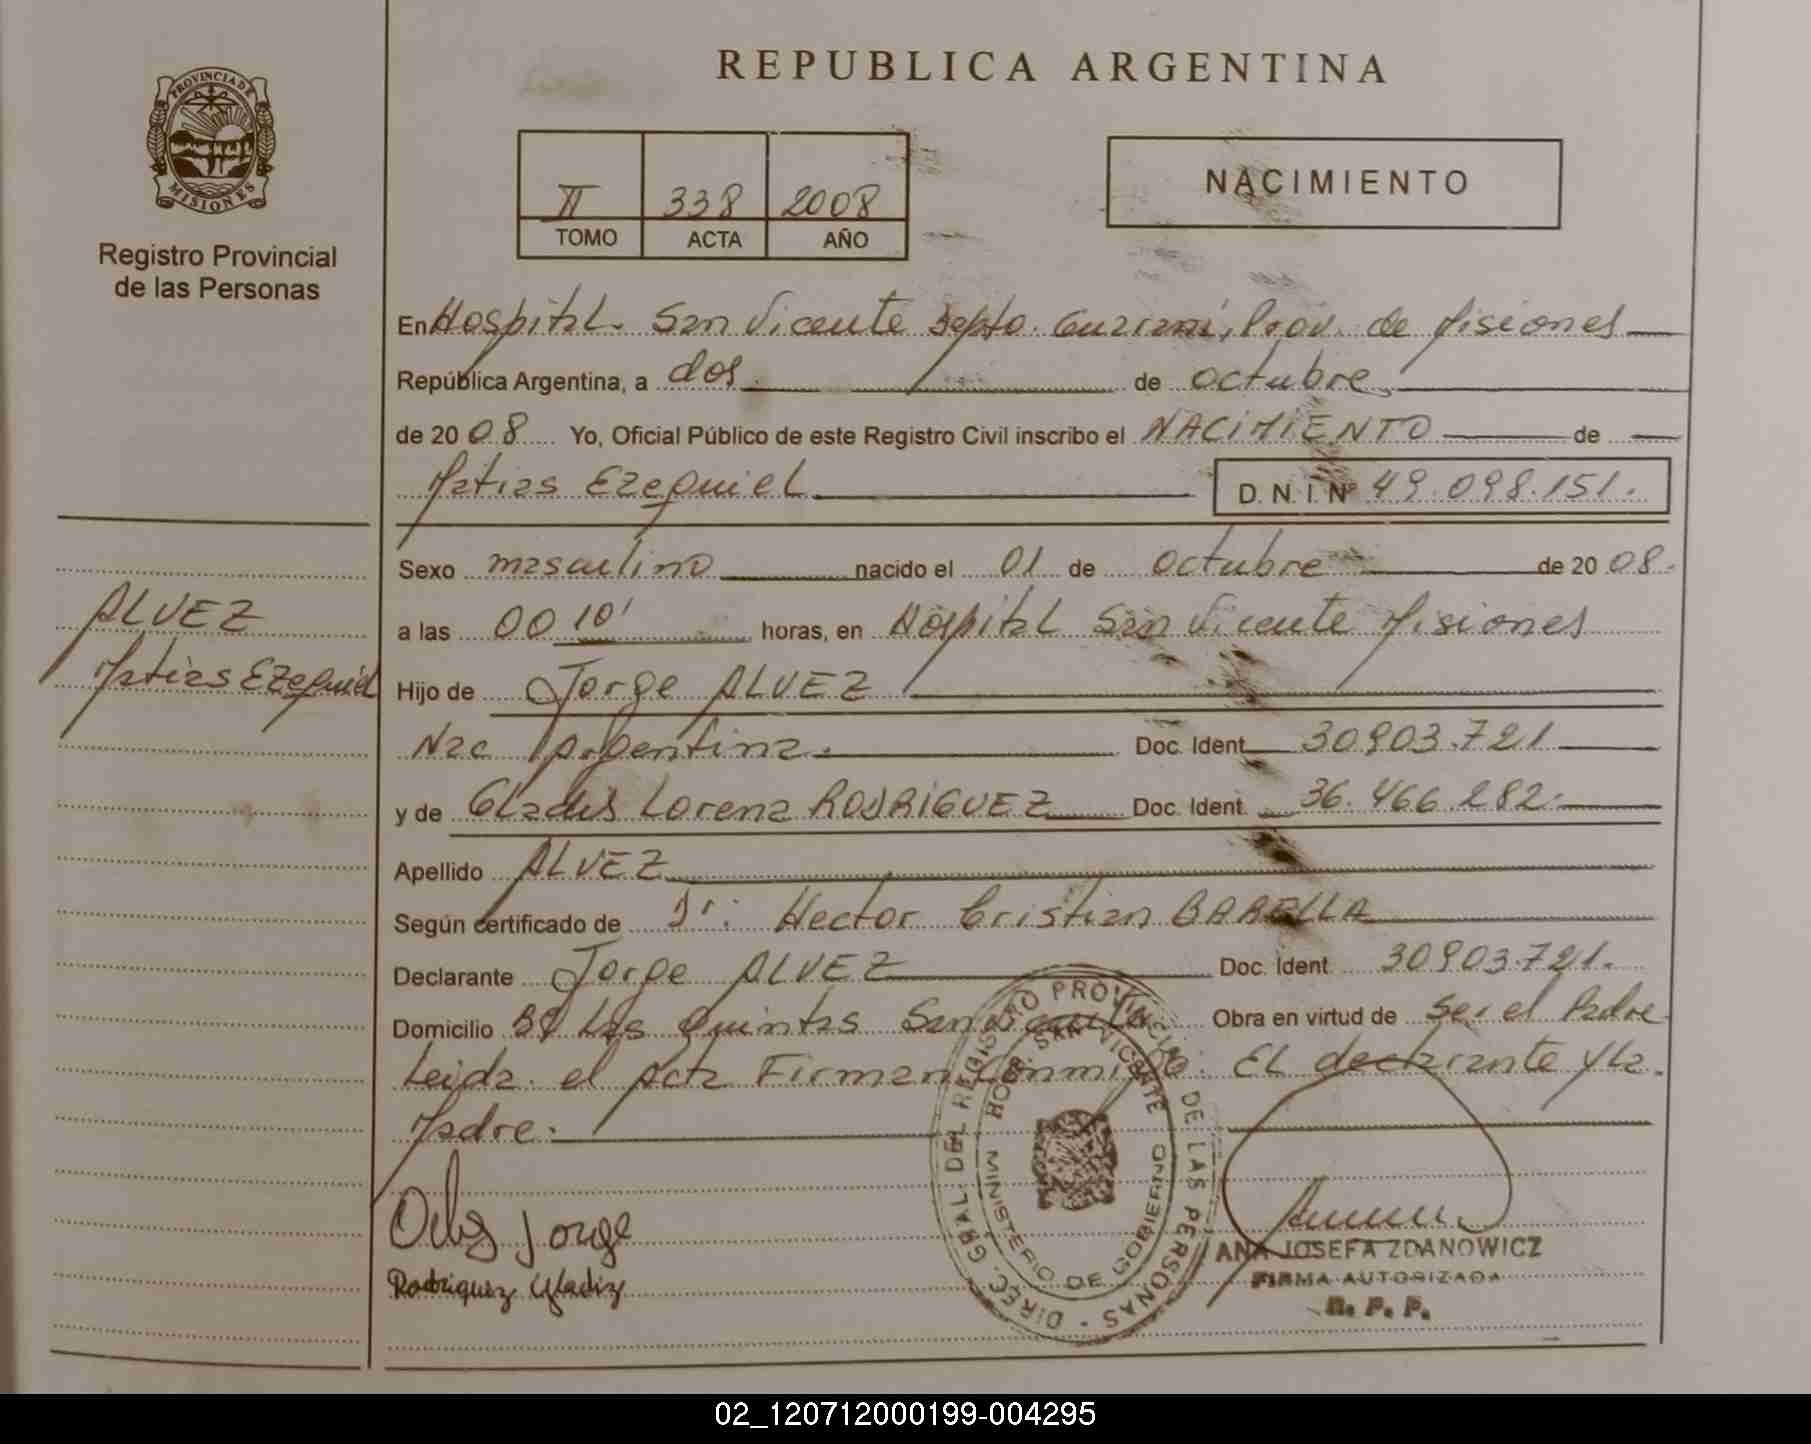 REPUBLICA ARGENTINA
PROVINCIA DE
MISIONES
Registro Provincial
de las Personas
II 338 2008
TOMO ACTA AÑO
NACIMIENTO
En Hospital San Vicente Depto. Guaraní, Prov. de Misiones
República Argentina, a dos de octubre
de 2008 Yo, Oficial Público de este Registro Civil inscribo el NACIMIENTO de
Matias Ezequiel D.N.I. Nº 49.098.151.
ALVEZ
Matias Ezequiel
Sexo masculino nacido el 01 de octubre de 2008.
a las 00 10' horas, en Hospital San Vicente Misiones
Hijo de Jorge ALVEZ
Nac Argentina. Doc. Ident. 30903.721
y de Gladis Lorena RODRIGUEZ Doc. Ident. 36.466.282.
Apellido ALVEZ
Según certificado de Dr: Hector Cristian BARELLA
Declarante Jorge ALVEZ Doc. Ident 30903.721.
Domicilio Bº Las Quintas San Vicente Obra en virtud de Ser el Padre
Leida el Acta Firman Conmigo: El declarante y la
Madre.
Jorge
Rodriguez Gladiz
DIREC. GRAL. DEL REGISTRO PROVINCIAL DE LAS PERSONAS
HOSP. SAN VICENTE
MINISTERIO DE GOBIERNO
ANA JOSEFA ZDANOWICZ
FIRMA AUTORIZADA
R. P. P.
02_120712000199-004295